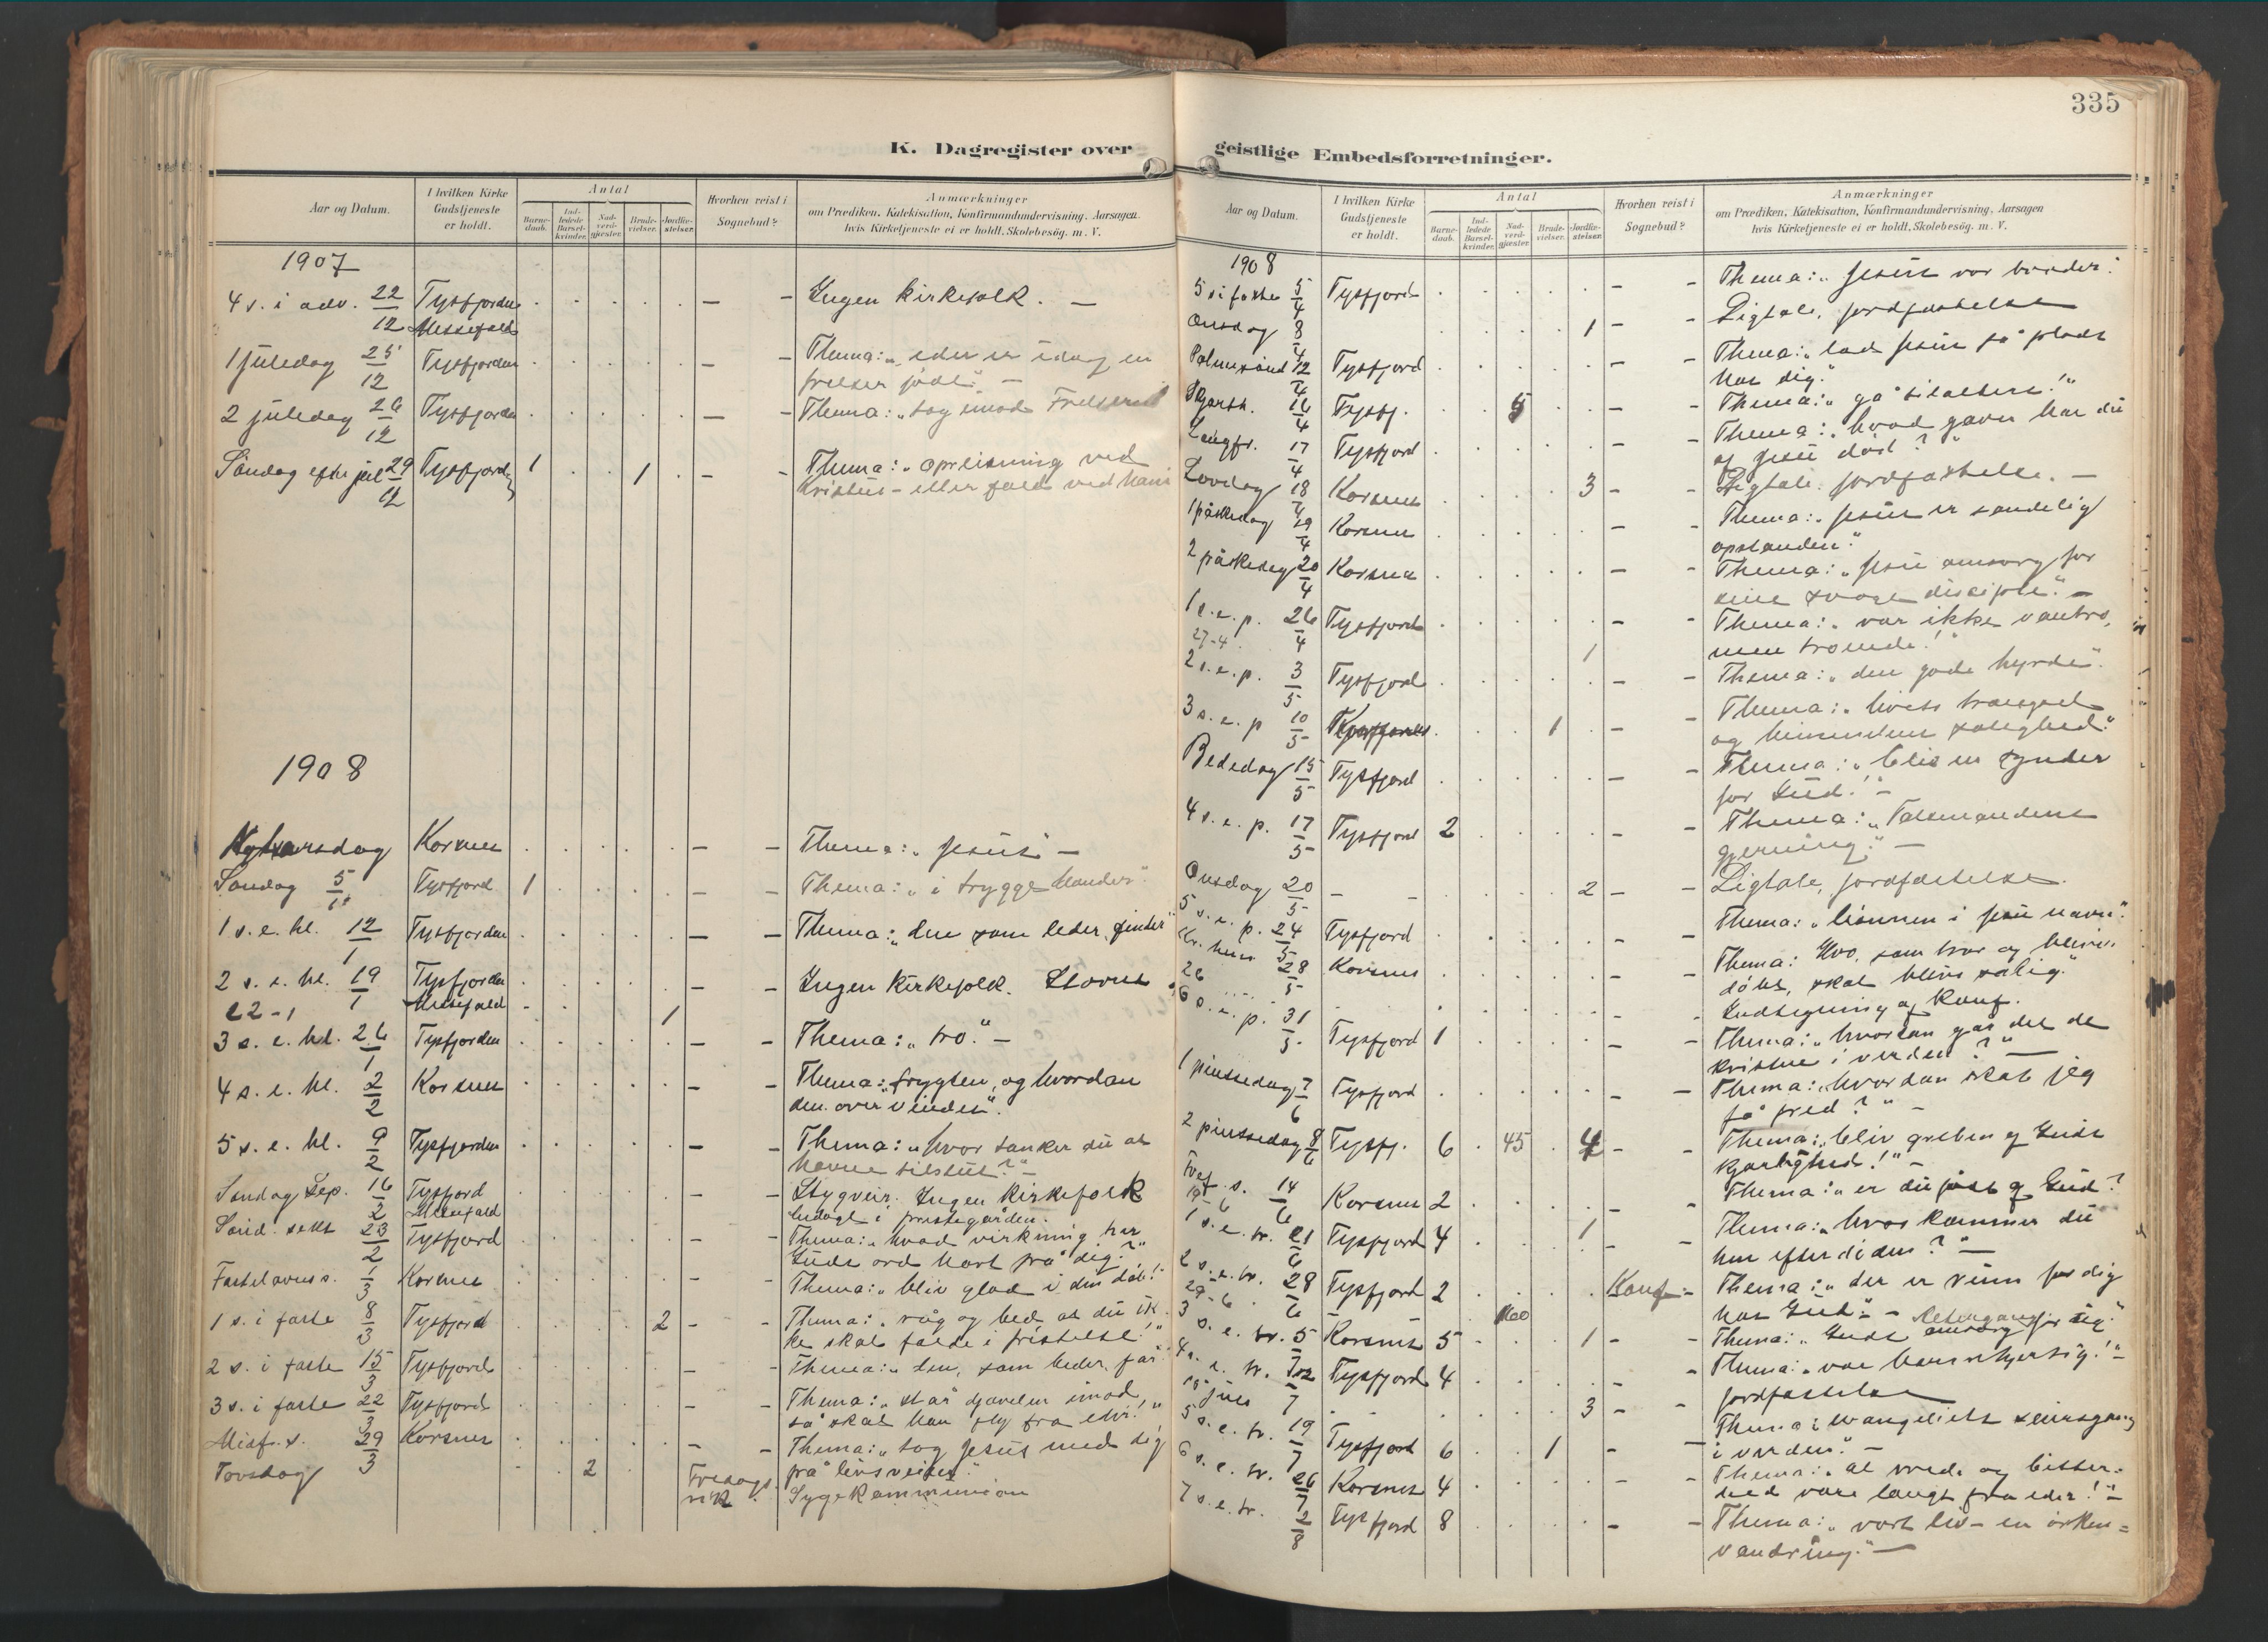 335
K. Dagregister over
Aar og Datum.
I hvilken Kirke
Gudstjeneste
er holdt.
Antal
Barne-
daab.
Ind-
ledede
Barsel-
kvinder.
Nad-
verd-
gjæster.
Brude-
vielser.
Jordfæ-
stelser.
Hvorhen reist i
Sognebud?
Anmærkninger
om Prædiken, Katekisation, Konfirmandundervisning, Aarsagen
hvis Kirketjeneste ei er holdt, Skolebesög. m. V.
1907
4 s. i adv. 22/12 Tysfjorden . . . . . — — Ingen kirkefolk. —
Messefald
1 juledag 25/12 Tysfjorden . . . . . — — Thema: „eder er idag en
frelser födt." —
2 juledag 26/12 Tysfjorden . . . . . — — Thema: „tag imod Frelseren
Söndag efter jul 29/12 Tysfjord 1 . . 1 . — — Thema: „opreisning ved
Kristus – eller fald ved ham
1908
Nytaarsdag Korsnes . . . . . — — Thema: „Jesus" —
Söndag 5/1 Tysfjord 1 . . . . — — Thema: „i trygge hænder".
1 s. e. hl. 12/1 Tysfjorden . . . . . — — Thema: „den som leder, finder"
2 s. e. hl. 19/1 Tysfjorden . . . . . — — Ingen kirkefolk. Storm
22-1 Messefald 1
3 s. e. hl. 26/1 Tysfjorden . . . . . — — Thema: „tro." —
4 s. e. hl. 2/2 Korsnes . . . . . — — Thema: „frygten, og hvordan
den overvindes".
5 s. e. hl. 9/2 Tysfjorden . . . . . — — Thema: „hvor tænker du at
havne tilslut?" —
Söndag Sep. 16/2 Tysfjord . . . . . — — Stygveir. Ingen kirkefolk
Messefald i prestegården.
Sönd. seks 23/2 Tysfjord . . . . . — — Thema: „hvad virkning har
Guds ord havt på dig?"
Fastelavns s. 1/3 Korsnes . . . . . — — Thema: „bliv glad i din dåb!"
1 s. i faste 8/3 Tysfjord . . . . 2 — — Thema: „våg og bed at du ik-
ke skal falde i fristelse!"
2 s. i faste 15/3 Tysfjord . . . . . — — Thema: „den, som beder, får."
3 s. i faste 22/3 Tysfjord . . . . . — — Thema: „stå djævelen imod,
så skal han fly fra eder!"
Midf. s. 29/3 Korsnes . . . . . — — Thema: „tag Jesus med dig
på livsveien".
Torsdag . . 2 . . Sygekommunion
geistlige Embedsforretninger.
Aar og Datum.
I hvilken Kirke
Gudstjeneste
er holdt.
Antal
Barne-
daab.
Ind-
ledede
Barsel-
kvinder.
Nad-
verd-
gjæster.
Brude-
vielser.
Jordfæ-
stelser.
Hvorhen reist i
Sognebud?
Anmærkninger
om Prædiken, Katekisation, Konfirmandundervisning, Aarsagen
hvis Kirketjeneste ei er holdt, Skolebesög. m. V.
1908
5 s i faste 5/4 Tysfjord . . . . . — — Thema: „Jesus vor broder."
Onsdag 8/4 . . . . 1 — — Ligtale, jordfæstelse
Palmesönd 12/4 Tysfjord . . . . . — — Thema: „lad Jesus få plads
hos dig."
Skjærth. 16/4 Tysfj. . . 5 . . — — Thema: „gå til alters!"
Langfr. 17/4 Tysfjord . . . . . — — Thema: „hvad gavn har du
af Jesu död?"
Lördag 18/4 Korsnes . . . . 3 — — Ligtale. jordfæstelse. —
1 påskedag 19/4 Korsnes . . . . . — — Thema: „Jesus er sandelig
opstanden".
2 påskedag 20/4 Korsnes . . . . . — — Thema: „Jesu omsorg for
sine svage disciple". —
1 s. e. p. 26/4 Tysfjord . . . . . — — Thema: „vær ikke vantro,
27-4 1 men troende!"
2 s. e. p. 3/5 Tysfjord . . . . . — — Thema: „den gode hyrde".
3 s. e. p 10/5 . . . 1 . — — Thema: „livets trængsel
og himmelens salighed."
Bededag 15/5 Tysfjord . . . . . — — Thema: „bliv en synder
for Gud!" —
4 s. e. p. 17/5 Tysfjord 2 . . . . — — Thema: „Talsmandens
gjerning." —
Onsdag 20/5 — — 2 — — Ligtale, jordfæstelse.
5 s. e. p. 24/5 Tysfjord . . . . . — — Thema: „bönnen i Jesu navn".
Kr. him 28/5 Korsnes . . . . . — — Thema: Hvo, som tror og bliver
döbt, skal blive salig."
26 . . . . . — — Indsegning af konf.
6 s. e. p. 31/5 Tysfjord 1 . . . . — — Thema: „hvordan går det de
kristne i verden?" —
1 pinsedag 7/6 Tysfjord . . . . . — — Thema: „hvordan skal jeg
få fred?" —
2 pinsedag 8/6 Tysfj. 6 . 45 . 4 — — Thema: „bliv greben af Guds
kjærlighed!" —
Tref. s. 14/6 Korsnes 2 . . . . — — Thema: „er du födt af Gud?
19/6 1
1 s. e. tr. 21/6 Tysfjord 4 . . . . — — Thema: „hvor kommer du
hen efter döden?" —
2 s. e. tr. 28/6 Tysfjord 2 . . . . Konf — Thema: „der er rum for dig
29-6 100 hos Gud". —
3 s. e. tr. 5/7 Korsnes 5 . . . 1 — — Thema: „Guds omsorg for dig".
4 s. e. tr. 12/7 Tysfjord 4 . . . . — — Thema: „vær barmhjertig!" —
7 . . . . 3 — — jordfæstelse
5 s. e. tr. 19/7 Tysfjord 6 . . 1 . — — Thema: evangeliets seiersgang
i verden". —
6 s. e. tr. 26/7 Korsnes 4 . . . . — — Thema: „al vrede og bitter-
hed være langt fra eder!" —
7 s. e. tr. 2/8 Tysfjord 8 . . . . — — Thema: „vort liv – en örken=
vandring." —